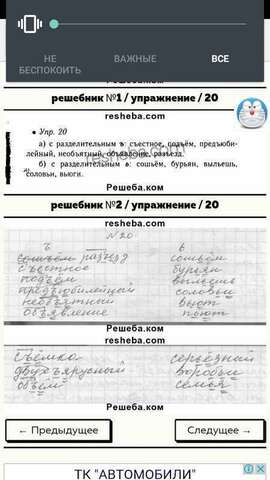 НЕ БЕСПОКОИТЬ
ВАЖНЫЕ
ВСЕ
Решеба.ком
решебник №1 / упражнение / 20
resheba.com
• Упр. 20
а) с разделительным ъ: съестное, подъём, предъюби-
лейный, необъятный, объявление, разъезд.
б) с разделительным ь: сошьём, бурьян, выльешь,
соловьи, вьюги.
resheba.com
Решеба.ком
решебник №2 / упражнение / 20
resheba.com
№20
ъ ь
разъезд сошьём
съестное бурьян
подъём выльешь
предъюбилейный соловьи
необъятный вьют
объявление
Решеба.ком
resheba.com
съёмка серьёзный
двухъярусный воробьи
объём семья
Решеба.ком
← Предыдущее
Следующее →
ТК "АВТОМОБИЛИ"